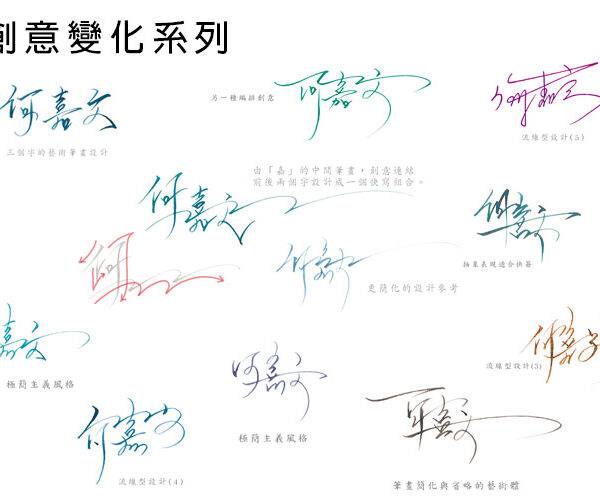 創意變化系列
何嘉文
三個字的藝術筆畫設計
另一種編排創意
何嘉文
何嘉文
流線型設計(5)
由「嘉」的中間筆畫,創意連結
前後兩個字設計成一個快寫組合。
何嘉文
何嘉文
抽象表現適合快簽
何嘉文
更簡化的設計參考
嘉文
極簡主義風格
何嘉文
極簡主義風格
何嘉
流線型設計(3)
何嘉文
流線型設計(4)
何嘉文
筆畫簡化與省略的藝術體